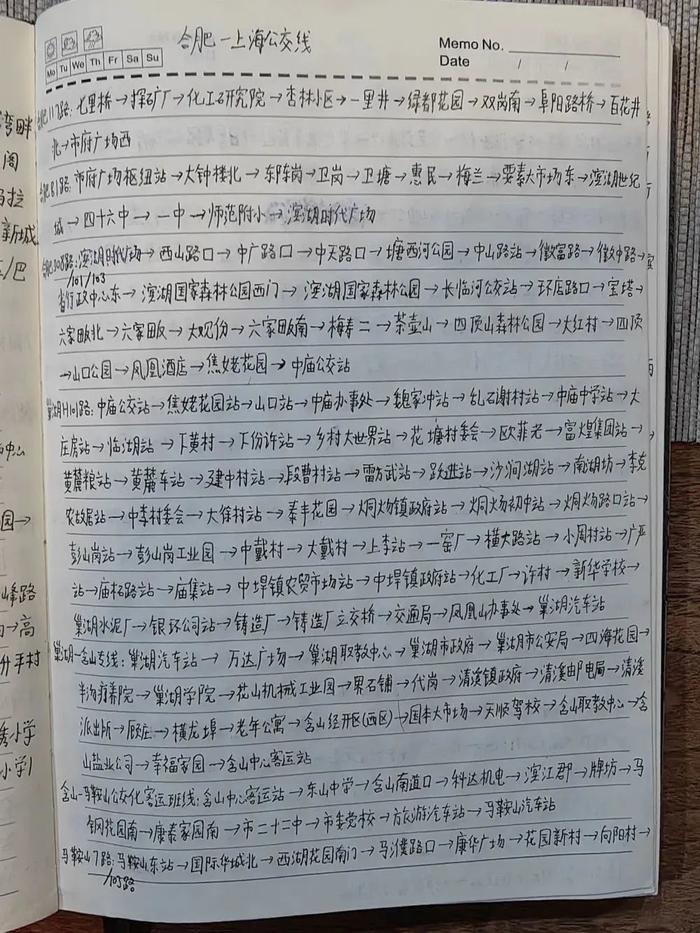 合肥－上海公交线
Memo No.
Mo Tu We Th Fr Sa Su
Date / /
合肥117路：七里桥→探矿厂→化工研究院→杏林小区→一里井→绿都花园→双岗南→阜阳路桥→百花井
北→市府广场西
合肥81路：市府广场枢纽站→大钟楼北→东陈岗→卫岗→卫塘→惠民→梅兰→要素大市场东→滨湖世纪
城→四十六中→一中→师范附小→滨湖时代广场
滨湖时代广场→西山路口→中广路口→中天路口→塘西河公园→中山路站→徽富路→徽中路→
/101/103
省行政中心东→滨湖国家森林公园西门→滨湖国家森林公园→长临河公交站→环店路口→宝塔→
六家畈北→六家畈→大观份→六家畈南→梅寿二→茶壶山→四顶山森林公园→大红村→四顶
→山口公园→凤凰酒店→焦姥花园→中庙公交站
巢湖H101路：中庙公交站→焦姥花园站→山口站→中庙办事处→魏家冲站→乱石谢村站→中庙中学站→大
庄房站→临湖站→下黄村→下份许站→乡村大世界站→花塘村委会→欧菲光→富煌集团站→
黄麓粮站→黄麓车站→建中村站→段曹村站→雷坊武站→跃进站→沙涧湖站→南湖坊→李克
农故居站→中李村委会→大俸村站→泰丰花园→烔炀镇政府站→烔炀初中站→烔炀路口站→
彭山岗站→彭山岗工业园→中戴村→大戴村→上李站→一窑厂→横大路站→小周村站→广严
站→庙石路站→庙集站→中垾镇农贸市场站→中垾镇政府站→化工厂→许村→新华学校→
巢湖水泥厂→银环公司站→铸造厂→铸造厂立交桥→交通局→凤凰山办事处→巢湖汽车站
巢湖－含山专线：巢湖汽车站→万达广场→巢湖职教中心→巢湖市政府→巢湖市公安局→四海花园→
半汤疗养院→巢湖学院→花山机械工业园→界石铺→代岗→清溪镇政府→清溪邮电局→清溪
派出所→顾庄→横龙埠→老年公寓→含山经开区(西区)→国本大市场→天顺驾校→含山职教中心→含
山盐业公司→幸福家园→含山中心客运站
含山－马鞍山公交化客运班线：含山中心客运站→东山中学→含山南道口→科达机电→滨江郡→牌坊→马
钢花园南→康泰家园南→市二十二中→市委党校→方旅游汽车站→马鞍山汽车站
马鞍山7路：马鞍山东站→国际华城北→西湖花园南门→马濮路口→康华广场→花园新村→向阳村→
/105路